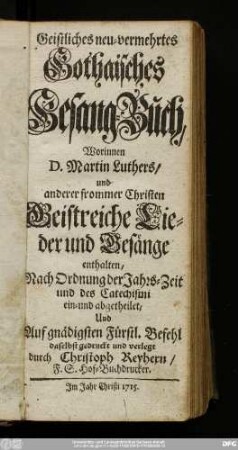 Geistliches neu-vermehrtes
Gothaisches
Gesang-Buch,
Worinnen
D. Martin Luthers/
und
anderer frommer Christen
Geistreiche Lie-
der und Gesänge
enthalten/
Nach Ordnung der Jahrs-Zeit
und des Catechismi
ein-und abgetheilet/
Und
Auf gnädigsten Fürstl. Befehl
daselbst gedruckt und verlegt
durch Christoph Reyhern/
F. S. Hof-Buchdrucker.
Im Jahr Christi 1715.
DFG